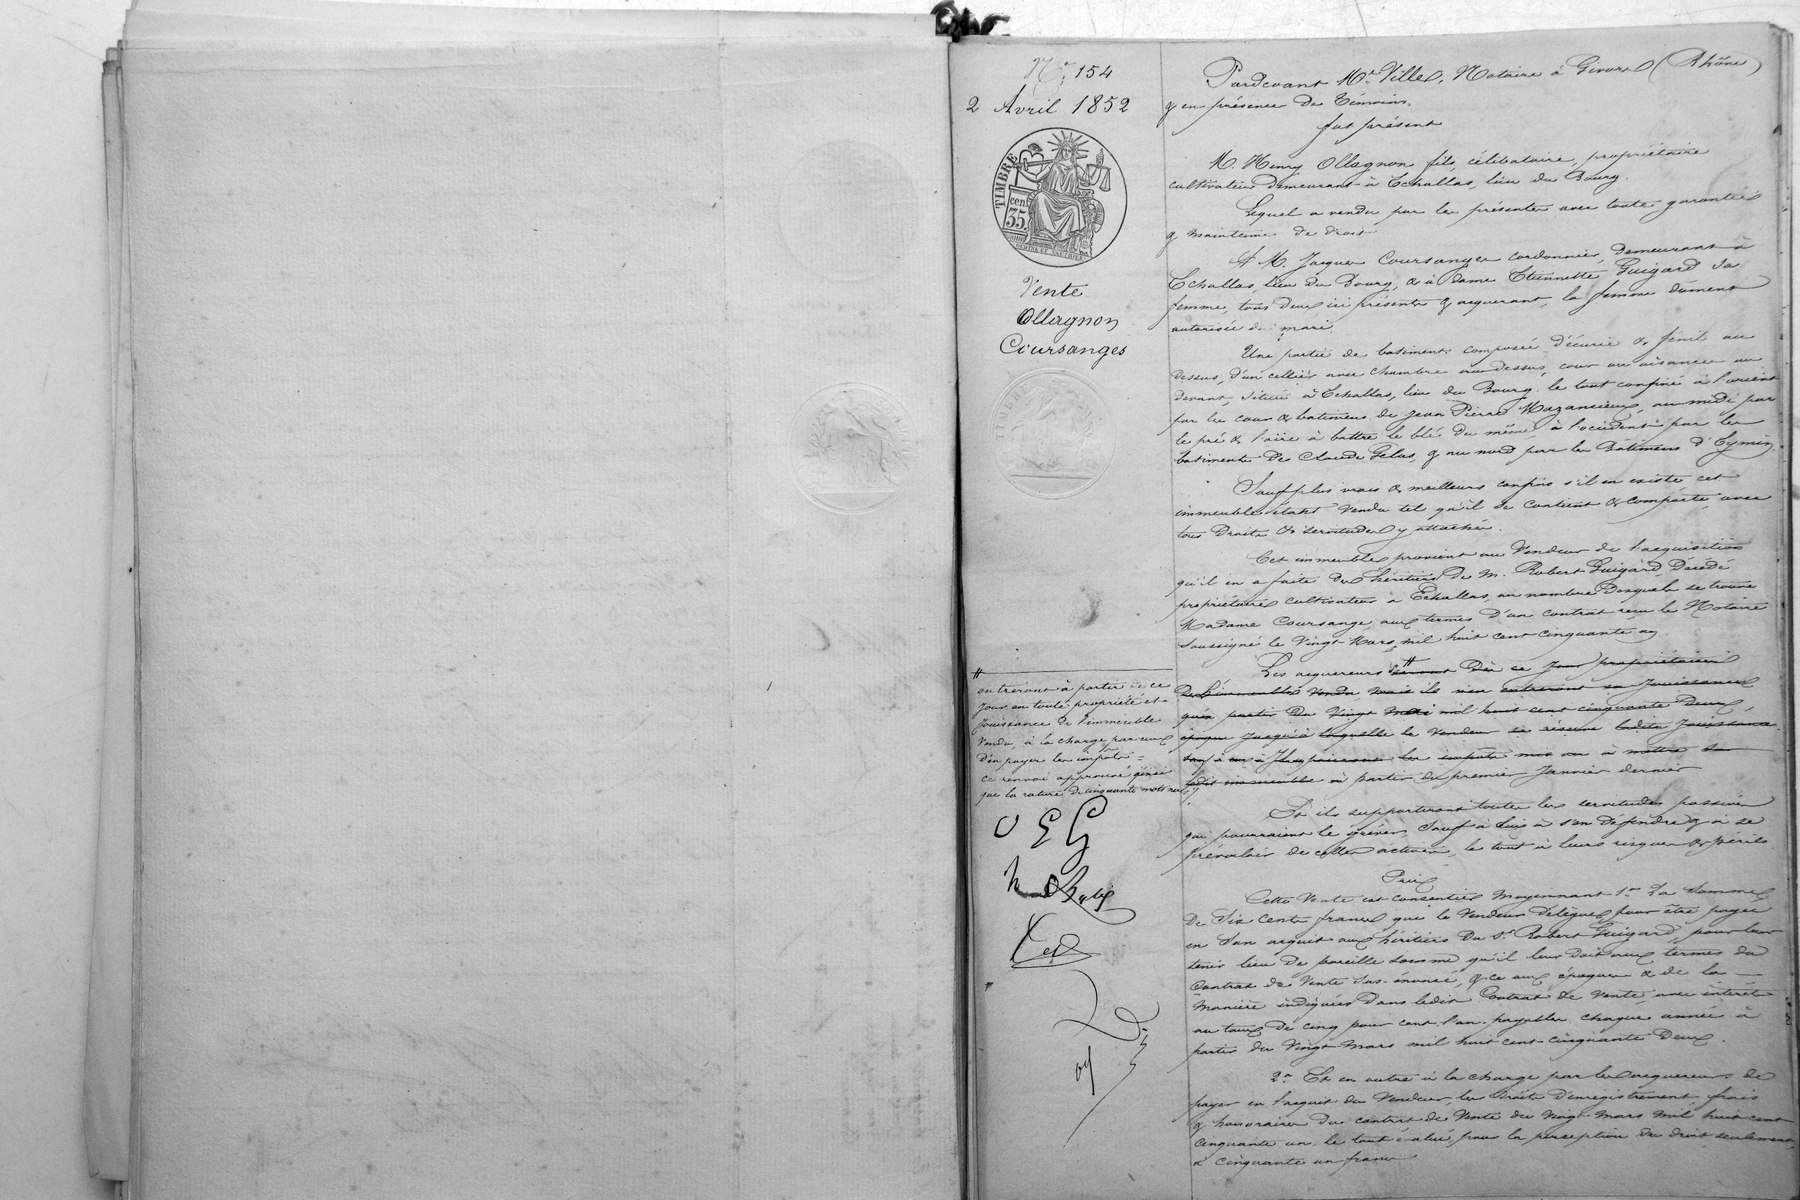 N° 154
2 Avril 1852
TIMBRE
cen.
35
Vente
Ollagnon
Coursanges
Pardevant Me Ville, Notaire à Givors (Rhône)
& en présence de témoins.
fut présent
M. Henry Ollagnon fils célibataire, propriétaire
cultivateur demeurant à Echallas, lieu du Bourg.
Lequel a vendu par les présentes avec toute garantie
& maintenue de droit
A M. Jacques Coursange cordonnier, demeurant à
Echallas, lieu du Bourg, & à dame Etiennette Guigard sa
femme, tous deux ici présents & acquérant, la femme dûment
autorisée du mari,
Une partie de batiments composée d'écurie & fénil au
dessus, d'un cellier avec chambre au dessus, cour ou aisances au
devant, située à Echallas, lieu du Bourg. le tout confiné à l'orient
par les cour & batimens de Jean Pierre Mazansieux, au midi par
le pré & l'aire à battre le blé du même, à l'occident par les
batiments de Claude Gelas, & au nord par les Bâtimens d'Eymin
Sauf plus vrais & meilleurs confins s'il en existe cet
immeuble étant vendu tel qu'il se contient & comporte, avec
tous droits & servitudes y attachés.
Cet immeuble provient au Vendeur de l'acquisition
qu'il en a faite des héritiers de M. Robert Guigard, décédé
propriétaire cultivateur à Echallas, au nombre desquels se trouve
Madame Coursange, aux termes d'un contrat reçu le Notaire
soussigné le Vingt Mars mil huit cent cinquante un
Les acquéreurs seront dès ce jour propriétaires
de l'immeuble vendu mais ils n'en entreront en jouissance
qu'à partir du Vingt Mars mil huit cent cinquante Deux,
époque jusqu'à laquelle le Vendeur se réserve ladite jouissance
les impôts mis ou à mettre sur
ledit immeuble à partir du premier Janvier dernier
entreront à partir de ce
jour en toute propriété et
jouissance de l'immeuble
vendu, à la charge par eux
d'en payer les impôts =
Ce renvoi approuvé ainsi
que la rature de cinquante mots nuls
Et ils supporteront toutes les servitudes passives
qui pourraient le grever, sauf à eux à s'en défendre & à se
prévaloir de celles actives, le tout à leurs risques & périls
Prix
Cette Vente est consentie moyennant 1° la somme
de Six cents francs que le Vendeur délègue pour être payée
en son acquit aux héritiers du Sr Robert Guigard, pour leur
tenir lieu de pareille somme qu'il leur doit aux termes du
Contrat de Vente sus-énoncé, & ce aux époques & de la
manière indiquées dans ledit Contrat de Vente, avec intérêt
au taux de cinq pour cent l'an payables chaque année à
partir du Vingt Mars mil huit cent cinquante Deux.
2° Et en outre à la charge par les acquéreurs de
payer en l'acquit du Vendeur, les droits d'enregistrement, frais
& honoraires du contrat de Vente du Vingt Mars mil huit cent
cinquante un le tout évalué pour la perception du droit seulement
à cinquante un francs